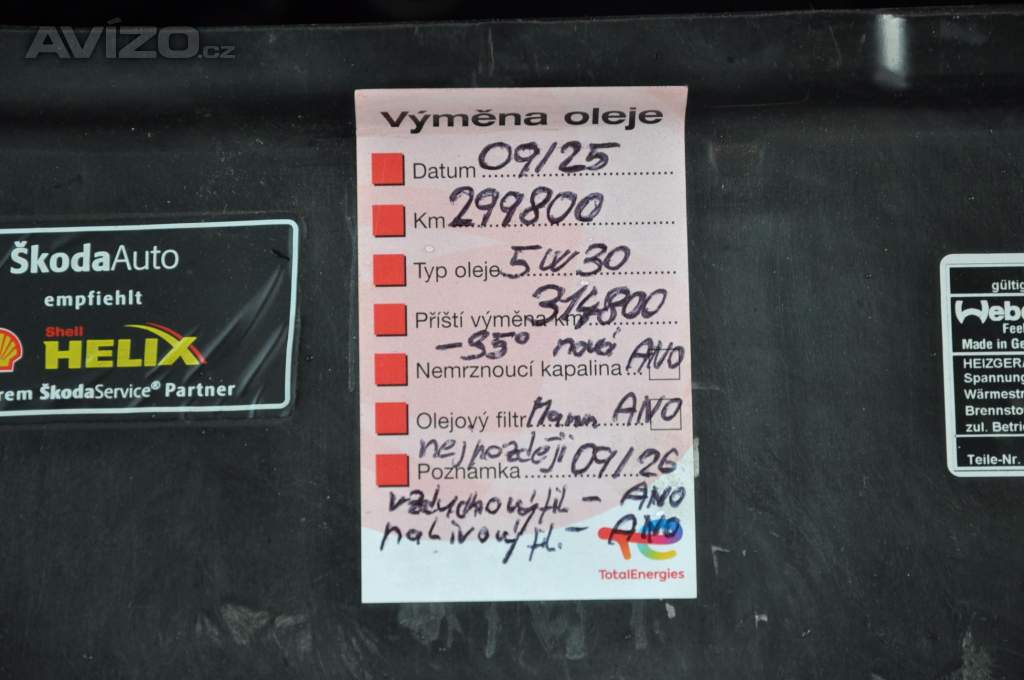 AVÍZO.cz
Výměna oleje
Datum 09/25
Km 299800
Typ oleje 5W30
Příští výměna km 314800
-35° nová
Nemrznoucí kapalina ANO
Olejový filtr Mann ANO
nejpozději
Poznámka 09/26
vzduchový fil. - ANO
palivový fil. - ANO
TotalEnergies
ŠkodaAuto
empfiehlt
Shell
HELIX
rem ŠkodaService® Partner
gültig
Webe
Feel
Made in Ge
HEIZGERÄ
Spannung
Wärmestr
Brennsto
zul. Betrie
Teile-Nr.